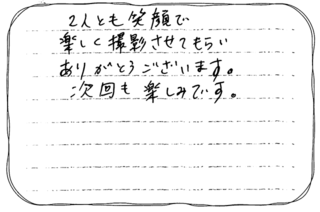 2人とも笑顔で
楽しく撮影させてもらい
ありがとうございます。
次回も楽しみです。